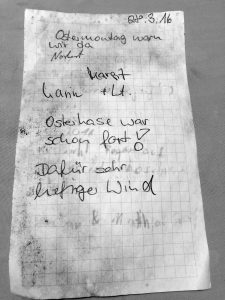 28.3.16
Ostermontag warn
wir da
Norbert
Karin + Lt.
Osterhase war
schon fort!
Dafür sehr
heftiger Wind